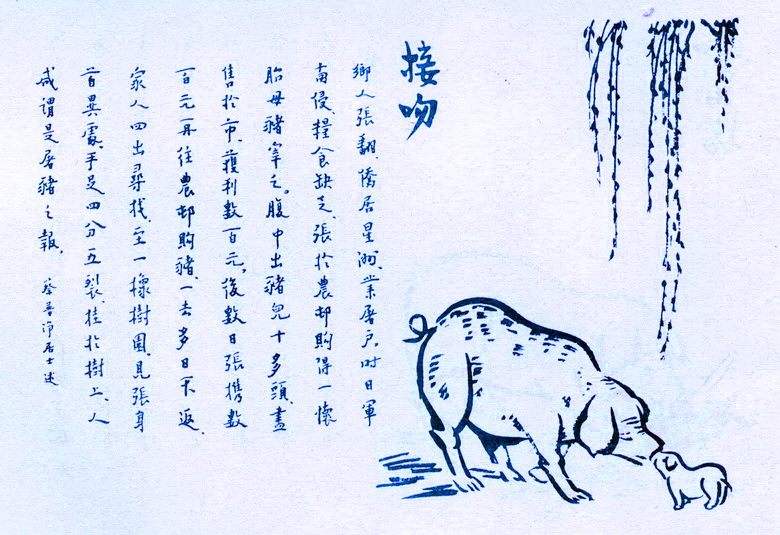 接吻
鄉人張翻、僑居星洲、業屠戶、時日軍
南侵、糧食缺乏、張於農邨購得一懷
胎母豬宰之。腹中出豬兒十多頭、盡
售於市、獲利數百元。後數日張攜數
百元再往農邨購豬、一去多日不返、
家人四出尋找、至一橡樹園、見張身
首異處、手足四分五裂、挂於樹上、人
咸謂是屠豬之報。
蔡普淨居士述